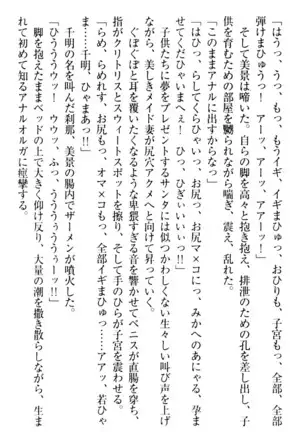 「はうっ、うっ、もっ、もうイギ、イギまひゅっ、おひりも、子宮もっ、全部、全部
弾けまひゅうっ！　アーッ、アーッ、アアーッ！」
　そして美景は啼いた。自らの脚を高々と抱き抱え、排泄のための孔を差し出し、子
供を育むための部屋を嬲られながら喘ぎ、震え、乱れた。
「このままアナルに出すからなっ」
「はひっ、らしてくらひゃいっ、お尻っ、お尻マ×コにっ、みかへのあにゃる、孕ま
せてくだひゃいまへぇ！　ひっ、ひぎぃいぃいっ!!」
　子供たちに夢をプレゼントするサンタには似つかわしくない生々しい叫び声を上げ
ながら、美しきメイド妻が尻穴アクメへと向けて昇っていく。
　ぐぽぐぽと耳を覆いたくなるような卑猥すぎる音を響かせてペニスが直腸を穿ち、
指がクリトリスとスウィートスポットを擦り、そして手のひらが子宮を震わせる。
「らめ、らめれす、お尻もっ、オマ×コもっ、全部イギまひゅっ……アアッ、若ひゃ
ま……千明、ひゃまあっ!!」
　千明の名を叫んだ刹那、美景の腸内でザーメンが噴火した。
「ひうううウッ！　ウウッ、ふっ、うううぅうぅーッ!!」
　脚を抱えたままベッドの上で大きく仰け反り、大量の潮を撒き散らしながら、生ま
れて初めて知るアナルオルガに痙攣する。